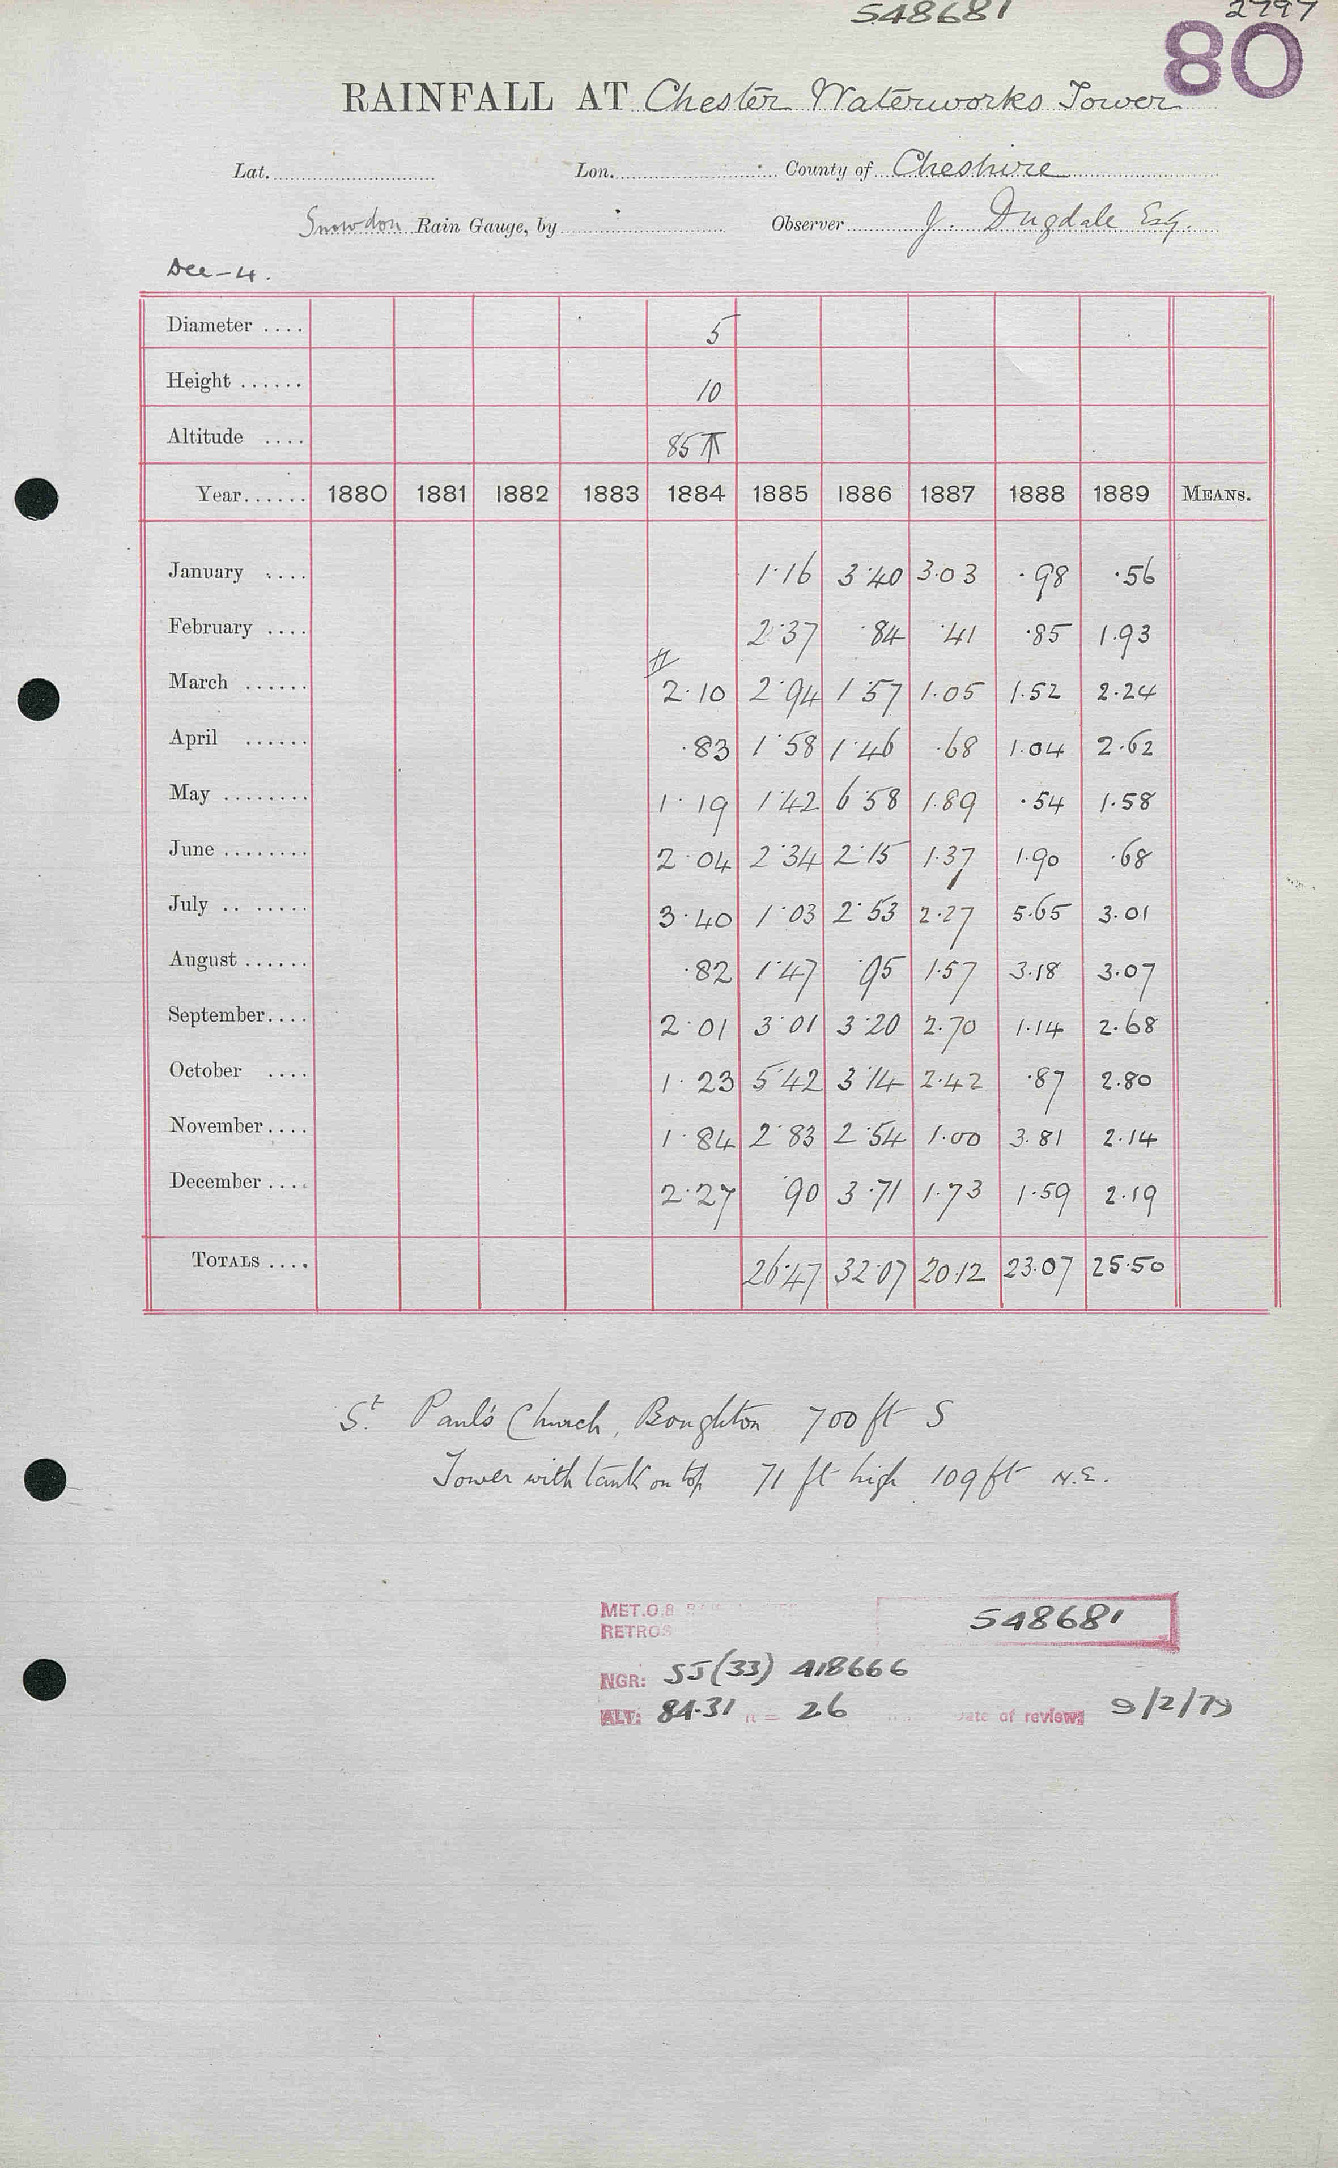 548681 2797
80
RAINFALL AT Chester Waterworks Tower
Lat. Lon. County of Cheshire
Snowdon Rain Gauge, by Observer J. Dugdale Esq.
Dec-4.
Diameter .... 5
Height ...... 10
Altitude .... 85
Year...... 1880 1881 1882 1883 1884 1885 1886 1887 1888 1889 MEANS.
January .... 1.16 3.40 3.03 .98 .56
February .... 2.37 .84 .41 .85 1.93
#
March ...... 2.10 2.94 1.57 1.05 1.52 2.24
April ...... .83 1.58 1.46 .68 1.04 2.62
May ........ 1.19 1.42 6.58 1.89 .54 1.58
June ........ 2.04 2.34 2.15 1.37 1.90 .68
July .. ..... 3.40 1.03 2.53 2.27 5.65 3.01
August ...... .82 1.47 .95 1.57 3.18 3.07
September.... 2.01 3.01 3.20 2.70 1.14 2.68
October .... 1.23 5.42 3.14 2.42 .87 2.80
November.... 1.84 2.83 2.54 1.00 3.81 2.14
December .... 2.27 .90 3.71 1.73 1.59 2.19
TOTALS .... 26.47 32.07 20.12 23.07 25.50
St. Paul's Church, Boughton 700 ft S
Tower with tank on top 71 ft high 109 ft N.E.
MET.O.8 548681
RETROS
NGR: SJ(33) 418666
ALT: 84.31 ft = 26 Date of review: 9/2/79